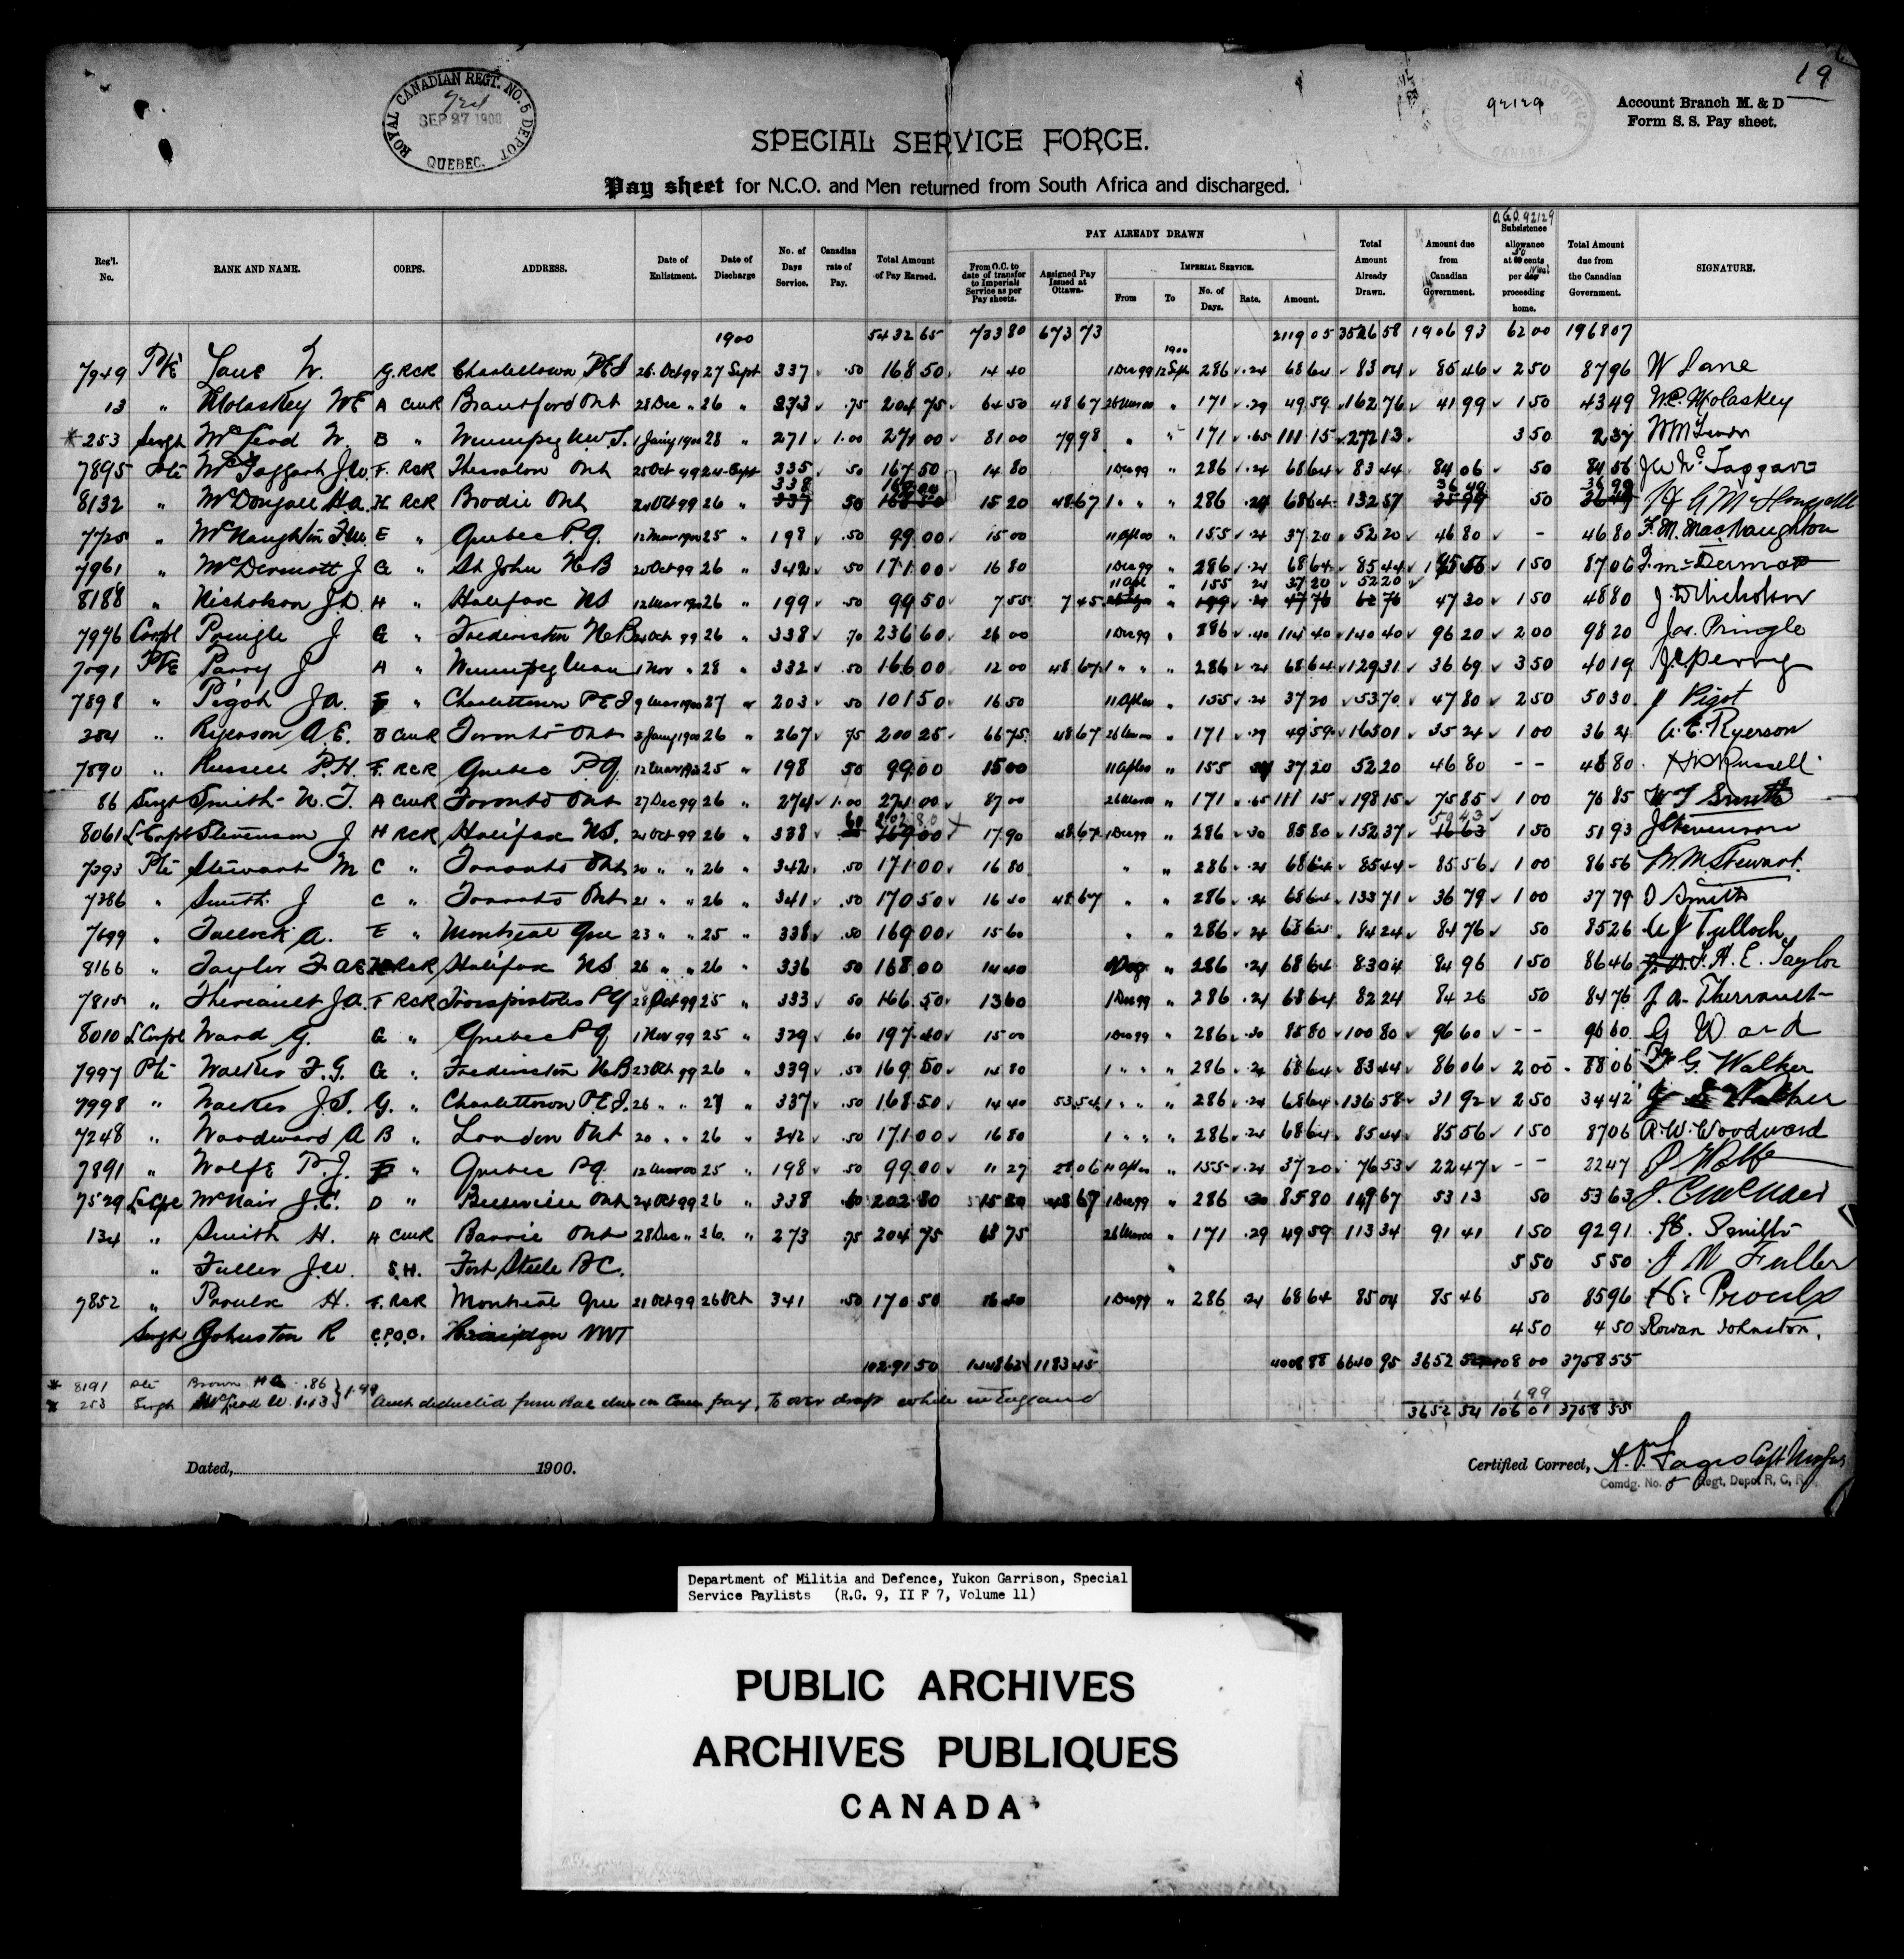 19
ROYAL CANADIAN REGT. NO. 5 DEPOT
SEP 27 1900
QUEBEC.
92129
Account Branch M. & D
Form S. S. Pay sheet.
SPECIAL SERVICE FORCE.
Pay sheet for N.C.O. and Men returned from South Africa and discharged.
Reg'l. No. RANK AND NAME. CORPS. ADDRESS. Date of Enlistment. Date of Discharge No. of Days Service. Canadian rate of Pay. Total Amount of Pay Earned. PAY ALREADY DRAWN From O.C. to date of transfer to Imperial Service as per Pay sheets. Assigned Pay Issued at Ottawa. IMPERIAL SERVICE. From To No. of Days. Rate. Amount. Total Amount Already Drawn. Amount due from Canadian Government. A.G.O. 92129 Subsistence allowance at 50 cents per meal proceeding home. Total Amount due from the Canadian Government. SIGNATURE.
1900 5432 65 733 80 673 73 2119 05 3526 58 1906 93 62 00 1968 07
7949 Pte Lane W. G. RCR Charlottetown PEI 26 Oct 99 27 Sept 337 .50 168 50 14 40 1 Dec 99 1900 12 Sept 286 .24 68 64 83 04 85 46 2 50 87 96 W Lane
13 " Molaskey WE A CMR Brantford Ont 28 Dec " 26 " 273 .75 204 75 64 50 48 67 26 Mar 00 " 171 .29 49 59 162 76 41 99 1 50 43 49 W.E. Molaskey
* 253 Sergt McLeod W. B " Winnipeg N.W.T. 1 Jany 1900 28 " 271 1.00 271 00 81 00 79 98 " " 171 .65 111 15 272 13 3 50 2 37
7895 Pte McTaggart J.W. F. RCR Thessalon Ont 25 Oct 99 24 Sept 335 50 167 50 14 80 1 Dec 99 " 286 .24 68 64 83 44 84 06 50 84 56 J W McTaggart
8132 " McDougall H.A. H RCR Brodie Ont 24 Oct 99 26 " 338 337 50 169 00 168 50 15 20 48 67 1 " " " 286 .24 68 64 132 51 36 49 35 99 50 36 99 36 49
7725 " McNaughtin F.M. E " Quebec P.Q. 12 Mar 1900 25 " 198 .50 99 00 15 00 11 Apl 00 " 155 .24 37 20 52 20 46 80 - 46 80 F. M. MacNaughton
7961 " McDermott J G " St John N B 20 Oct 99 26 " 342 50 171 00 16 80 1 Dec 99 " 286 .24 68 64 85 44 85 56 1 50 87 06 J. McDermott
8188 " Nicholson J.D. H " Halifax NS 12 Mar 1900 26 " 199 .50 99 50 7 55 7 45 11 Apl " 155 24 37 20 52 20 199 .24 47 76 62 76 47 30 1 50 48 80 J. D Nicholson
7996 Corpl Pringle J G " Fredericton N B 24 Oct 99 26 " 338 70 236 60 26 00 1 Dec 99 " 286 .40 114 40 140 40 96 20 2 00 98 20 Jas. Pringle
7091 Pte Parry J A " Winnipeg Man 1 Nov " 28 " 332 .50 166 00 12 00 48 67 1 " " " 286 .24 68 64 129 31 36 69 3 50 40 19
7898 " Pigot J.A. F " Charlottetown P E I 9 Mar 1900 27 " 203 50 101 50 16 50 11 Apl 00 " 155 .24 37 20 53 70 47 80 2 50 50 30 J Pigot
284 " Ryerson A.E. B CMR Toronto Ont 3 Jany 1900 26 " 267 75 200 25 66 75 48 67 26 Mar 00 " 171 .29 49 59 165 01 35 24 1 00 36 24 A. E. Ryerson
7890 " Russell P.H. F. RCR Quebec P.Q. 12 Mar 1900 25 " 198 50 99 00 15 00 11 Apl 00 " 155 24 37 20 52 20 46 80 -- 46 80
86 Sergt Smith W. T. A CMR Toronto Ont 27 Dec 99 26 " 274 1.00 274 00 87 00 26 Mar 00 " 171 .65 111 15 198 15 75 85 1 00 76 85 W T Smith
8061 L Corpl Stevenson J H RCR Halifax NS. 24 Oct 99 26 " 338 60 202 80 169 00 17 90 48 67 1 Dec 99 " 286 .30 85 80 152 37 50 43 16 63 1 50 51 93 J Stevenson
7393 Pte Stewart M C " Toronto Ont 20 " " 26 " 342 .50 171 00 16 80 " " 286 .24 68 64 85 44 85 56 1 00 86 56 W. M. Stewart.
7386 " Smith J C " Toronto Ont 21 " " 26 " 341 .50 170 50 16 40 48 67 " " 286 .24 68 64 133 71 36 79 1 00 37 79 Smith
7699 " Tulloch A. E " Montreal Que 23 " " 25 " 338 .50 169 00 15 60 " " 286 24 68 64 84 24 84 76 50 85 26 A J Tulloch
8166 " Taylor F A E H RCR Halifax NS 26 " " 26 " 336 50 168 00 14 40 1 Dec " 286 .24 68 64 83 04 84 96 1 50 86 46 F. A. E. Taylor
7815 " Theriault J.A. F RCR Troispistoles P Q 28 Oct 99 25 " 333 50 166 50 13 60 1 Dec 99 " 286 .24 68 64 82 24 84 26 50 84 76 J. A. Therriault
8010 L Corpl Ward G. G " Quebec P Q 1 Nov 99 25 " 329 .60 197 40 15 00 1 Dec 99 " 286 .30 85 80 100 80 96 60 -- 96 60 G Ward
7997 Pte Walker F. G. G " Fredericton N B 23 Oct 99 26 " 339 .50 169 50 14 80 1 " " " 286 .24 68 64 83 44 86 06 2 00 88 06 F. G. Walker
7998 " Walker J. S. G. " Charlottetown P.E.I. 26 " " 27 " 337 .50 168 50 14 40 53 54 1 " " " 286 .24 68 64 136 58 31 92 2 50 34 42 J S Walker
7248 " Woodward A B " London Ont 20 " " 26 " 342 .50 171 00 16 80 1 " " " 286 .24 68 64 85 44 85 56 1 50 87 06 A. W. Woodward
7891 " Wolfe P. J. F " Quebec P.Q. 12 Mar 00 25 " 198 50 99 00 11 27 28 06 11 Apl 00 " 155 .24 37 20 76 53 22 47 -- 22 47 P Wolfe
7529 L Cpl McNair J. C. D " Belleville Ont 24 Oct 99 26 " 338 60 202 80 15 20 48 67 1 Dec 99 " 286 .30 85 80 149 67 53 13 50 53 63 J. C McNair
134 " Smith H. A CMR Barrie Ont 28 Dec " 26 " 273 75 204 75 63 75 26 Mar 00 " 171 .29 49 59 113 34 91 41 1 50 92 91 H. Smith
" Fuller J.W. S.H. Fort Steele B C. " 5 50 5 50 J W Fuller
7852 " Proulx H. F. RCR Montreal Que 21 Oct 99 26 Oct 341 .50 170 50 16 40 1 Dec 99 " 286 24 68 64 85 04 85 46 50 85 96 H. Proulx
Sergt Johnston R C.P.O.C. NWT 4 50 4 50 Rowan Johnston.
102 91 50 1183 45 4008 88 6640 95 3652 54 108 00 3758 55
* 8191 Pte Brown H A .86 } 1.99
* 253 Sergt McLeod W. 1.13 Amt deducted from due on pay, to over draft while in England
1 99
3652 54 106 01 3758 55
Dated, 1900.
Certified Correct,
Comdg. No. 5 Regt, Depot R, C, R,
Department of Militia and Defence, Yukon Garrison, Special
Service Paylists (R.G. 9, II F 7, Volume 11)
PUBLIC ARCHIVES
ARCHIVES PUBLIQUES
CANADA